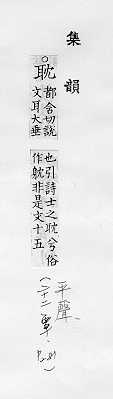 集韻
○耽
都含切說
文耳大垂
也引詩士之耽兮俗
作躭非是文十五
平聲
(二十二覃.